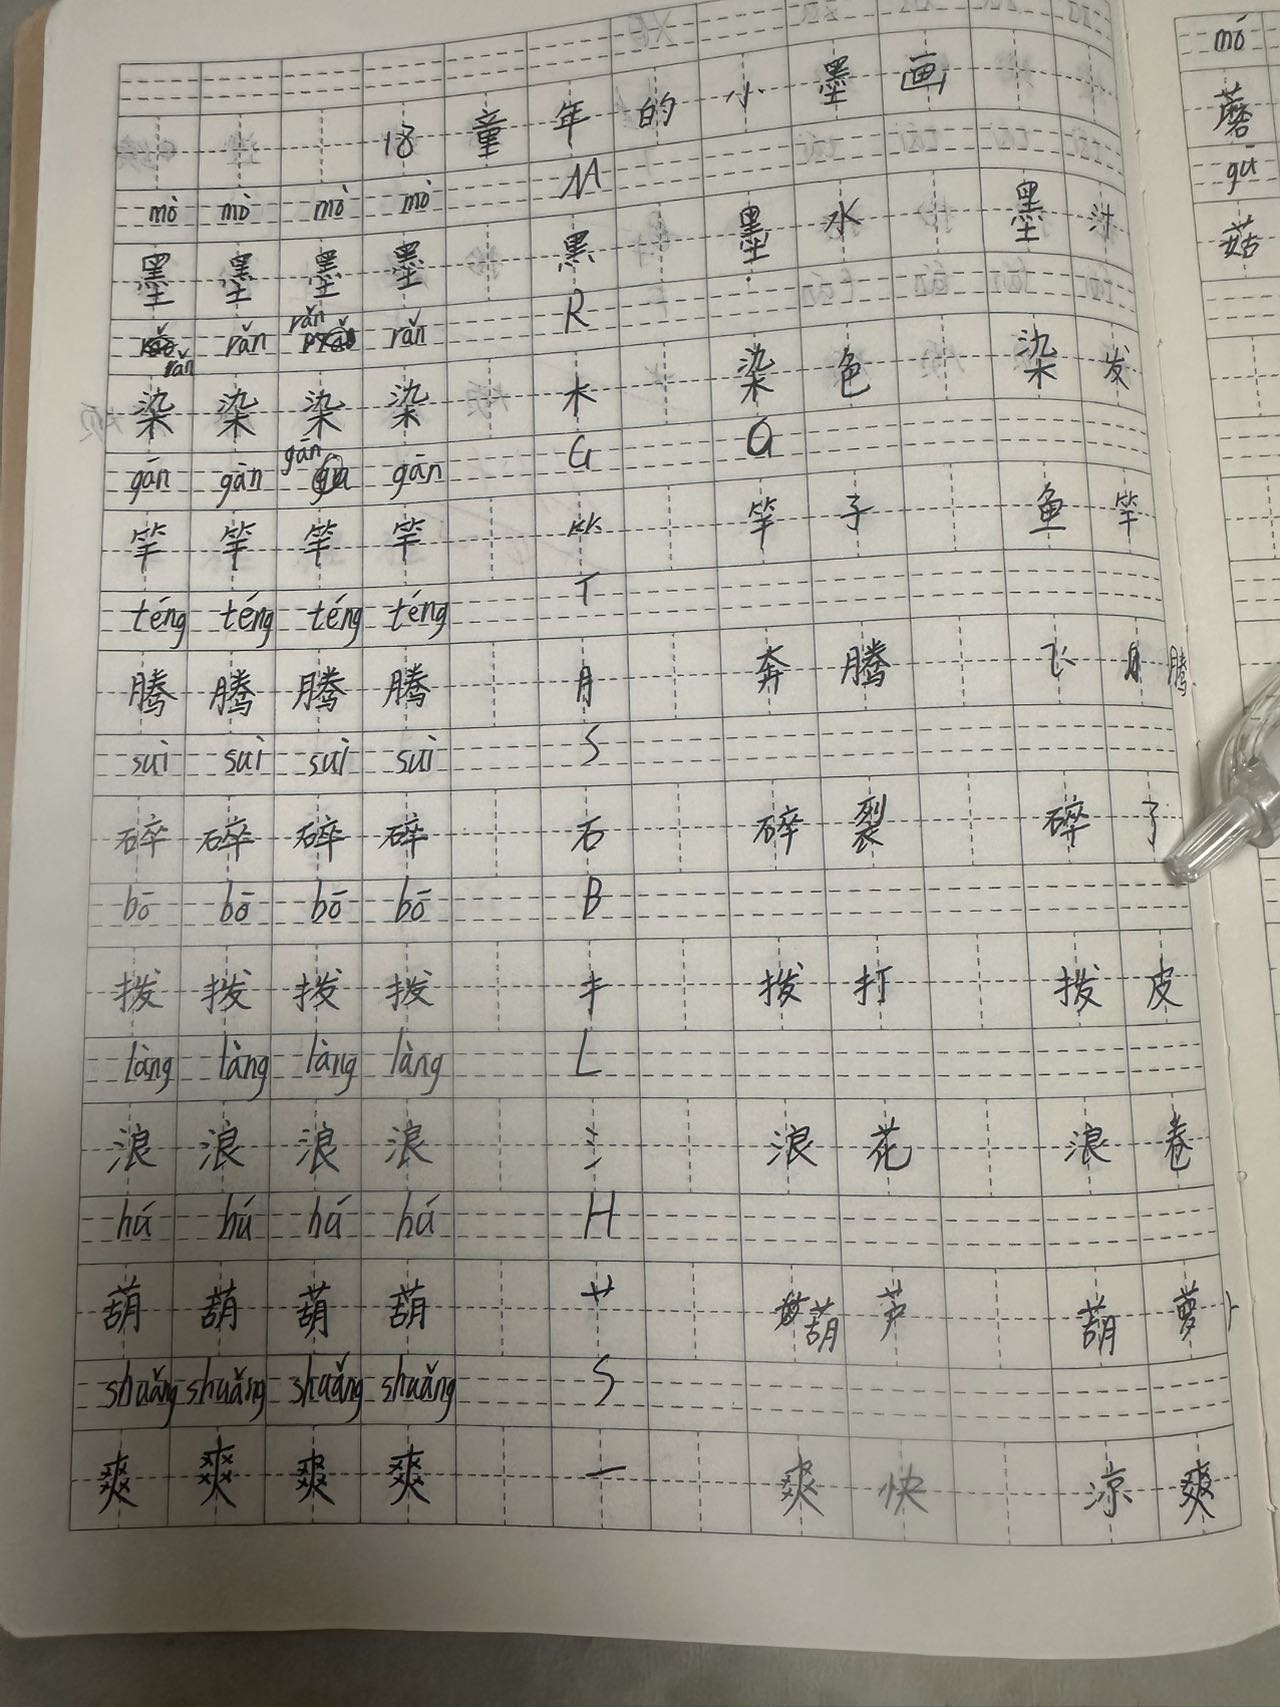 18 童年的小墨画
mò mò mò mò M
墨 墨 墨 墨 黑 墨水 墨汁
rǎn rǎn rǎn rǎn R
染 染 染 染 木 染色 染发
gān gān gān gān G G
竿 竿 竿 竿 ⺮ 竿子 鱼竿
téng téng téng téng T
腾 腾 腾 腾 月 奔腾 飞腾
suì suì suì suì S
碎 碎 碎 碎 石 碎裂 碎了
bō bō bō bō B
拨 拨 拨 拨 扌 拨打 拨皮
làng làng làng làng L
浪 浪 浪 浪 氵 浪花 浪卷
hú hú hú hú H
葫 葫 葫 葫 艹 葫芦 葫萝卜
shuǎng shuǎng shuǎng shuǎng S
爽 爽 爽 爽 一 爽快 凉爽
mó
蘑
gū
菇